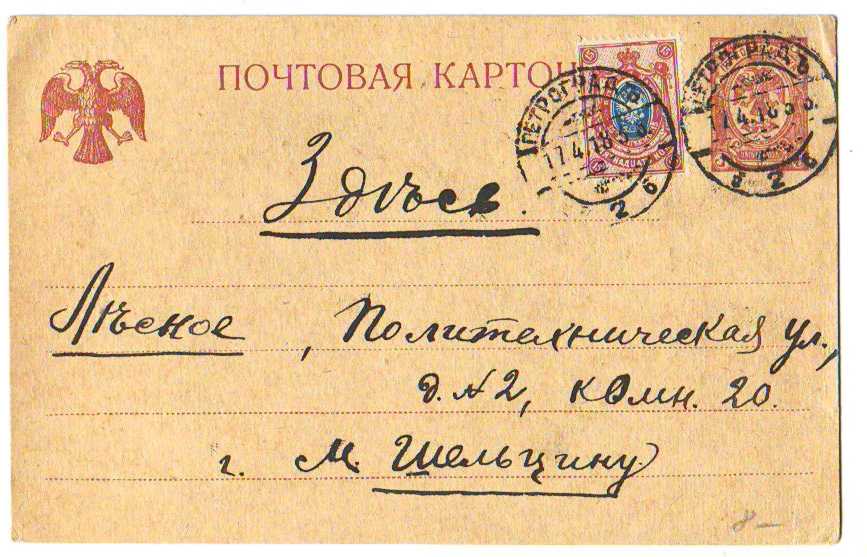 ПОЧТОВАЯ КАРТОЧ
ПЕТРОГРАДЪ
17.4.18
ПЕТРОГРАДЪ
17.4.18
Здѣсь.
Лѣсное, Политехническая ул.,
д. №2, комн. 20.
г. М. Шельцину
8–